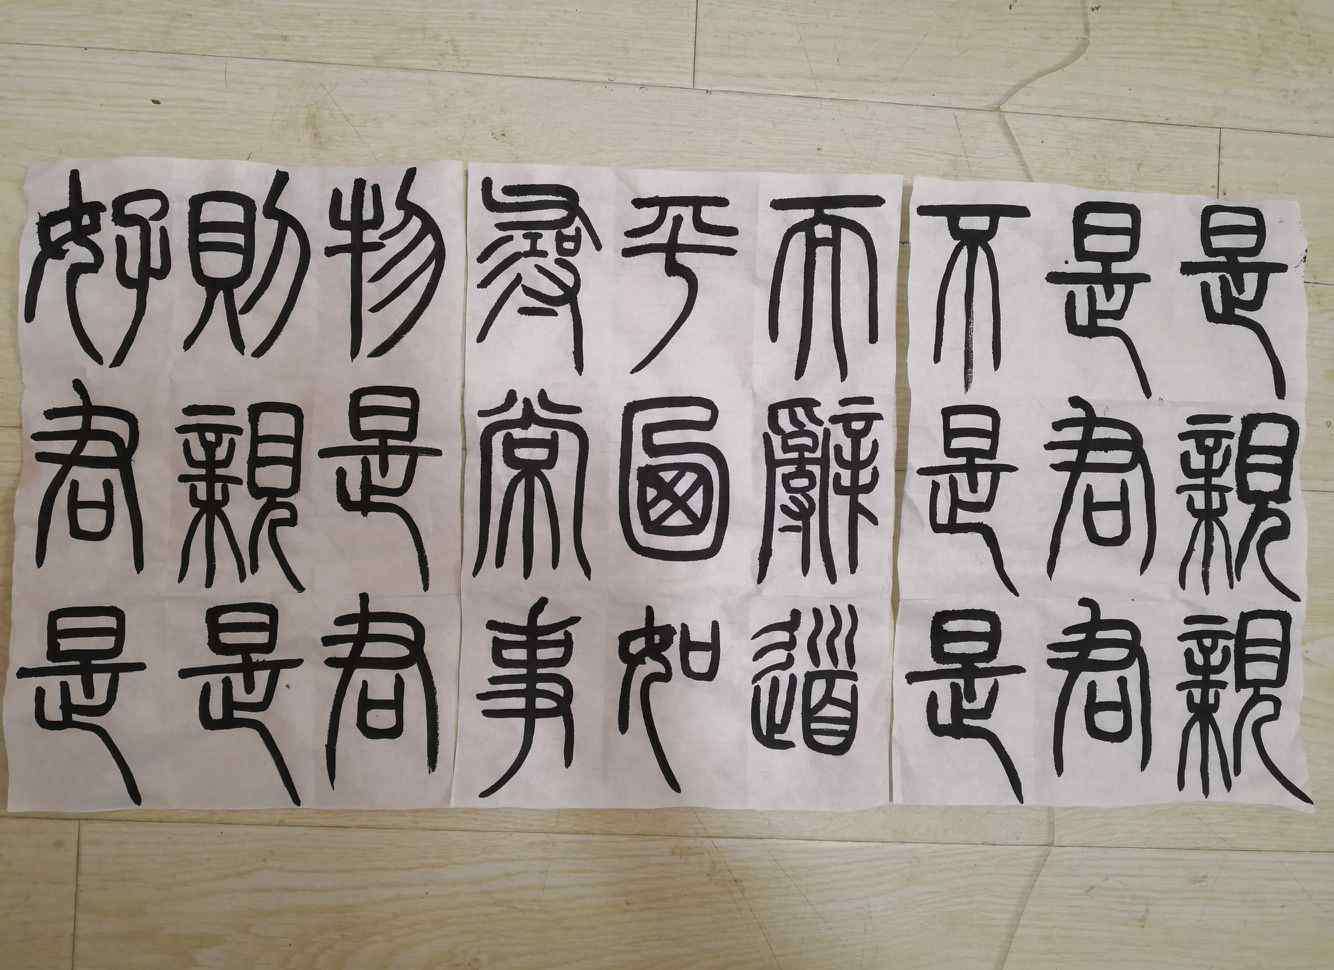 是親親
是君君
不是是
而辭道
平如
尋常事
物是君
則親是
好君是